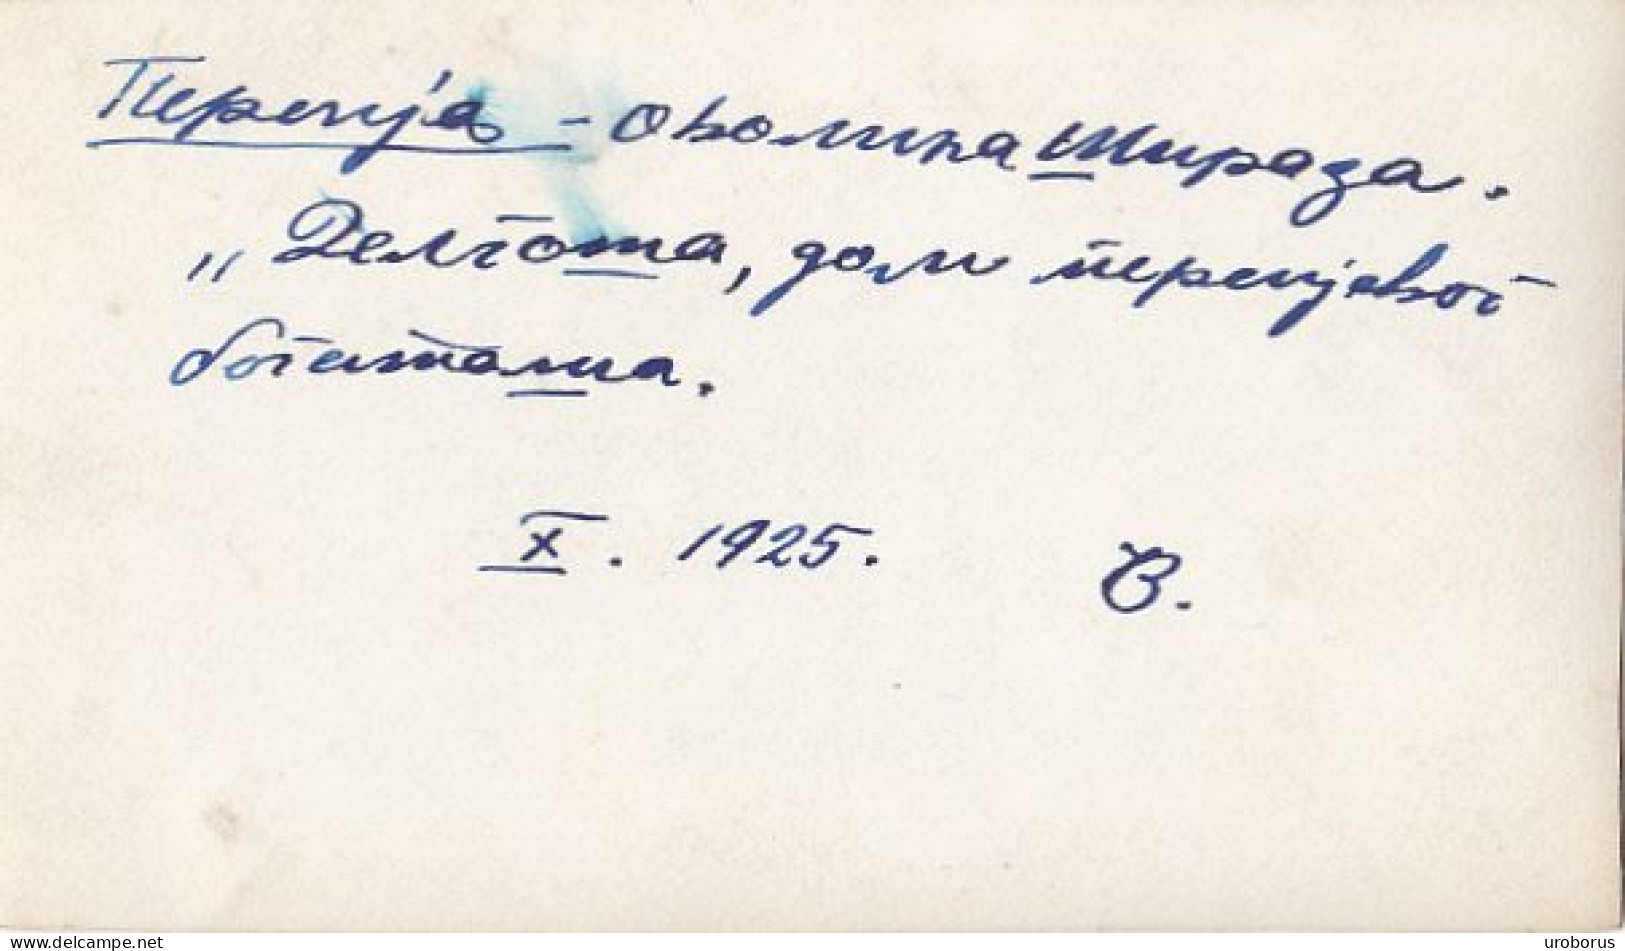 Персија - околина Шираза.
„Делгоша, дом персијског
богаташа.
X. 1925. С.
delcampe.net
uroborus